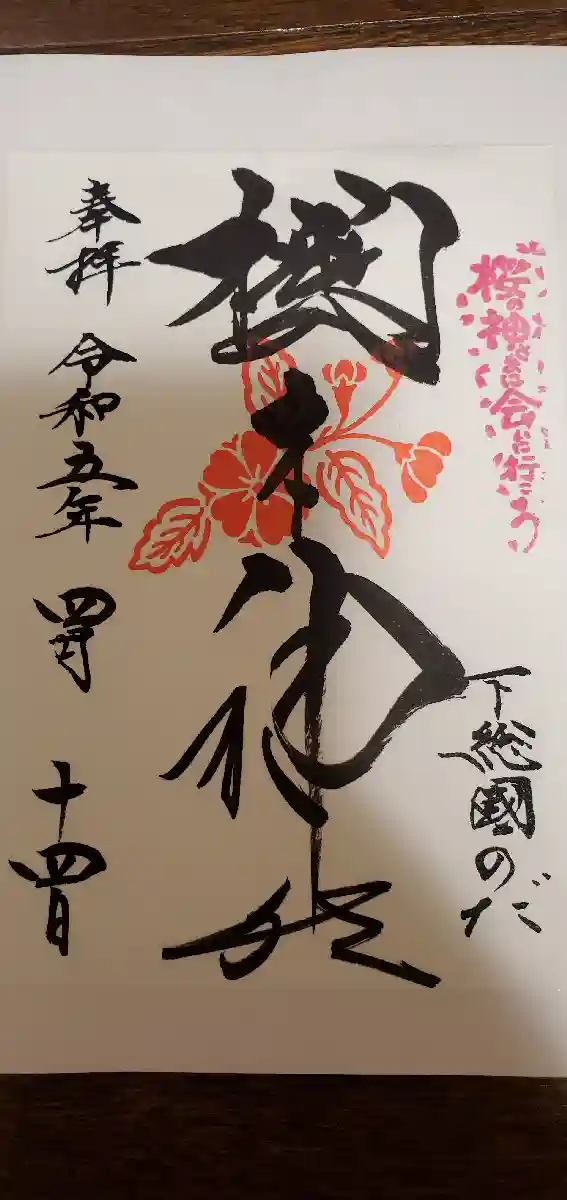 桜の神さまに会いに行こう
下総國のだ
櫻木神社
奉拝 令和五年 四月 十四日